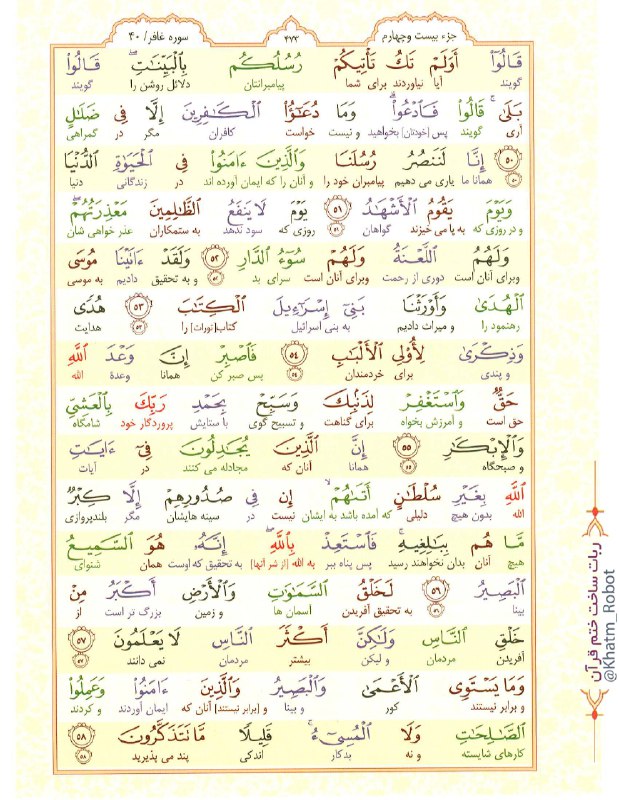 جزء بیست و چهارم ۴۷۳ سوره غافر/ ۴۰
قَالُوٓا۟ أَوَلَمْ تَكُ تَأْتِيكُمْ رُسُلُكُم بِٱلْبَيِّنَـٰتِ ۖ قَالُوا۟
گویند آیا نیاوردند برای شما پیامبرانتان دلائل روشن را گویند
بَلَىٰ ۚ قَالُوا۟ فَٱدْعُوا۟ ۗ وَمَا دُعَـٰٓؤُا۟ ٱلْكَـٰفِرِينَ إِلَّا فِى ضَلَـٰلٍ
آری گویند پس [خودتان] بخواهید و نیست خواست کافران مگر در گمراهی
﴿٥٠﴾ إِنَّا لَنَنصُرُ رُسُلَنَا وَٱلَّذِينَ ءَامَنُوا۟ فِى ٱلْحَيَوٰةِ ٱلدُّنْيَا
۵۰ همانا ما یاری می دهیم پیامبران خود را و آنان را که ایمان آورده اند در زندگانی دنیا
وَيَوْمَ يَقُومُ ٱلْأَشْهَـٰدُ ﴿٥١﴾ يَوْمَ لَا يَنفَعُ ٱلظَّـٰلِمِينَ مَعْذِرَتُهُمْ ۖ
و در روزی که به پا می خیزند گواهان ۵۱ روزی که سود ندهد به ستمکاران عذر خواهی شان
وَلَهُمُ ٱللَّعْنَةُ وَلَهُمْ سُوٓءُ ٱلدَّارِ ﴿٥٢﴾ وَلَقَدْ ءَاتَيْنَا مُوسَى
وبرای آنان است دوری از رحمت وبرای آنان است سرای بد ۵۲ و به تحقیق دادیم به موسی
ٱلْهُدَىٰ وَأَوْرَثْنَا بَنِىٓ إِسْرَٰٓءِيلَ ٱلْكِتَـٰبَ ﴿٥٣﴾ هُدًى
رهنمود را و میراث دادیم به بنی اسرائیل کتاب[تورات] را ۵۳ هدایت
وَذِكْرَىٰ لِأُو۟لِى ٱلْأَلْبَـٰبِ ﴿٥٤﴾ فَٱصْبِرْ إِنَّ وَعْدَ ٱللَّهِ
و پندی برای خردمندان ۵۴ پس صبر کن همانا وعدهٔ الله
حَقٌّ وَٱسْتَغْفِرْ لِذَنۢبِكَ وَسَبِّحْ بِحَمْدِ رَبِّكَ بِٱلْعَشِىِّ
حق است و آمرزش بخواه برای گناهت و تسبیح گوی با ستایش پروردگار خود شامگاه
وَٱلْإِبْكَـٰرِ ﴿٥٥﴾ إِنَّ ٱلَّذِينَ يُجَـٰدِلُونَ فِىٓ ءَايَـٰتِ
و صبحگاه ۵۵ همانا آنان که مجادله می کنند در آیات
ٱللَّهِ بِغَيْرِ سُلْطَـٰنٍ أَتَىٰهُمْ ۙ إِن فِى صُدُورِهِمْ إِلَّا كِبْرٌ
الله بدون هیچ دلیلی که آمده باشد به ایشان نیست در سینه هایشان مگر بلندپروازی
مَّا هُم بِبَـٰلِغِيهِ ۚ فَٱسْتَعِذْ بِٱللَّهِ ۖ إِنَّهُۥ هُوَ ٱلسَّمِيعُ
هیچ آنان بدان نخواهند رسید پس پناه ببر به الله [از شر آنها] به تحقیق که اوست همان شنوای
ٱلْبَصِيرُ ﴿٥٦﴾ لَخَلْقُ ٱلسَّمَـٰوَٰتِ وَٱلْأَرْضِ أَكْبَرُ مِنْ
بینا ۵۶ به تحقیق آفریدن آسمان ها و زمین بزرگ تر است از
خَلْقِ ٱلنَّاسِ وَلَـٰكِنَّ أَكْثَرَ ٱلنَّاسِ لَا يَعْلَمُونَ ﴿٥٧﴾
آفریدن مردمان و لیکن بیشتر مردمان نمی دانند ۵۷
وَمَا يَسْتَوِى ٱلْأَعْمَىٰ وَٱلْبَصِيرُ وَٱلَّذِينَ ءَامَنُوا۟ وَعَمِلُوا۟
و برابر نیستند کور و بینا و [برابر نیستند] آنان که ایمان آوردند و کردند
ٱلصَّـٰلِحَـٰتِ وَلَا ٱلْمُسِىٓءُ ۚ قَلِيلًا مَّا تَتَذَكَّرُونَ ﴿٥٨﴾
کارهای شایسته و نه بدکار اندکی پند می پذیرید ۵۸
ربات ساخت ختم قرآن
@Khatm_Robot